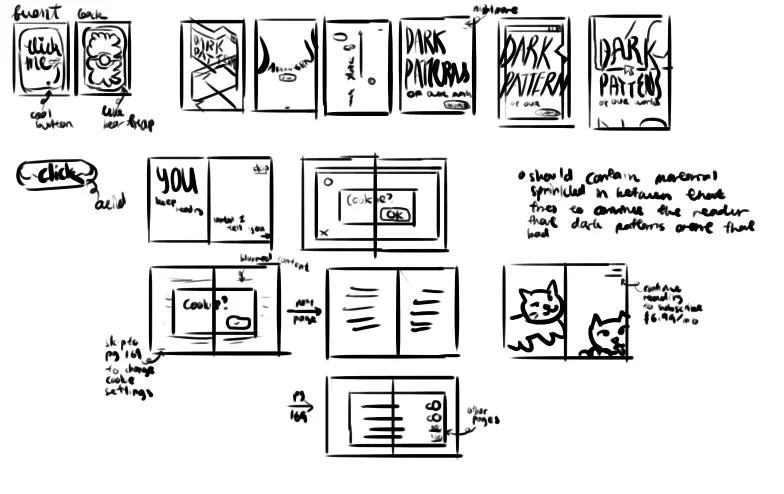 front
back
click
me
cool
button
like
bear trap
DARK
DARK
PATTERNS
OF OUR
nightmare
DARK
PATTERN
OF OUR
DARK
PATTERN
OF OUR WORLD
click
acid
YOU
keep
reading
skip
what I
tell you
Cookie?
OK
x
• should contain material
sprinkled in between that
tries to convince the reader
that dark patterns arent that
bad
blurred content
Cookie?
skip to
pg 169
to change
cookie
settings
next
page
continue
reading
to subscribe
$6.99/mo
pg
169
168
other
pages